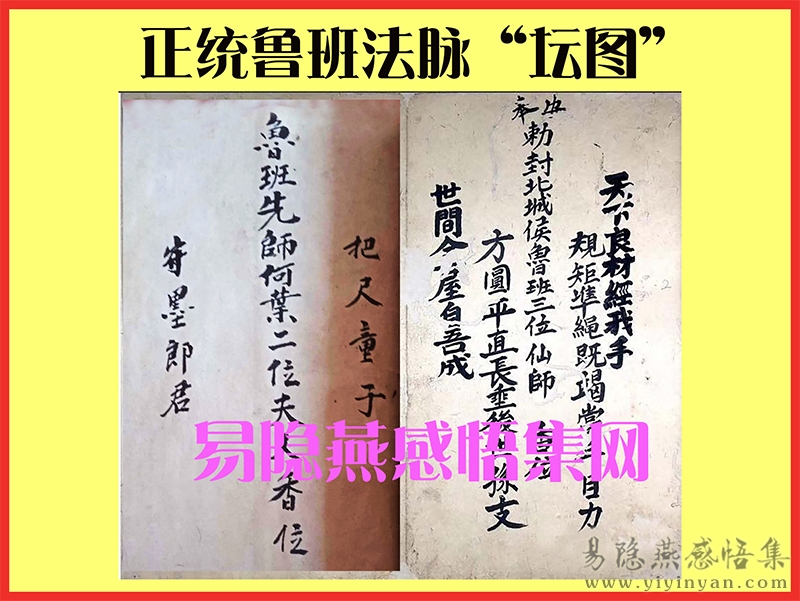 正统鲁班法脉“坛图”
把尺童子
魯班先師何葉二位夫人香位
墨郎君
天下良材經我手
規矩準繩既竭 目力
奉
勅封北城侯魯班三位仙師
方圓平直長垂後 孫支
世間 屋自吾成
易隐燕感悟集网
易隐燕感悟集
www.yiyinyan.com